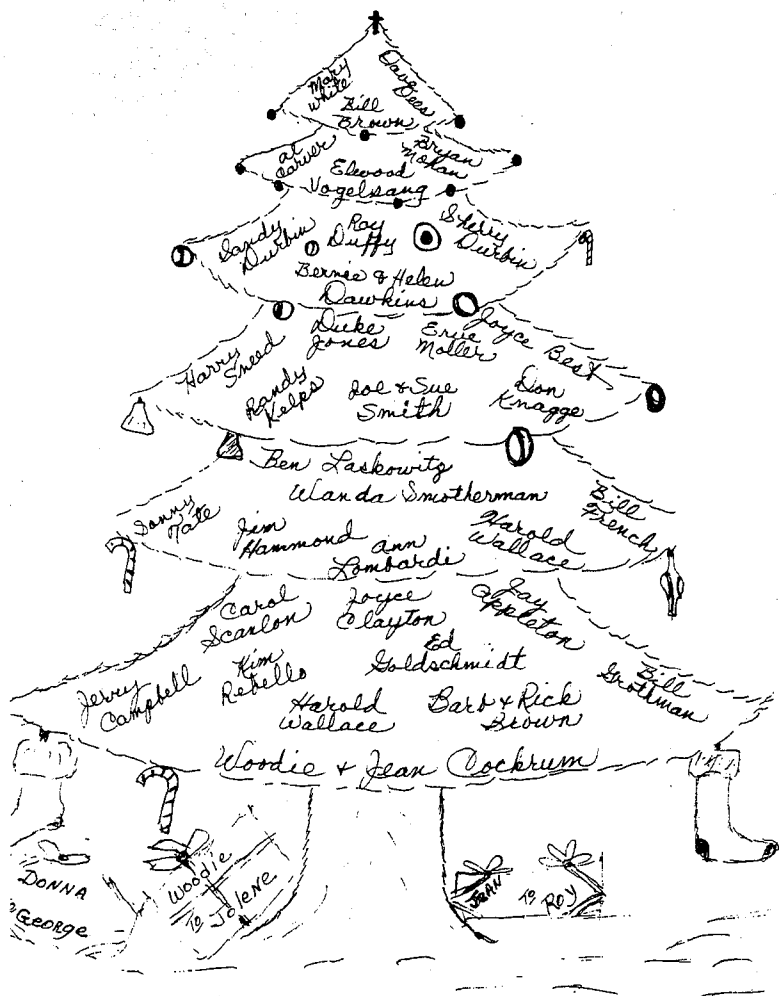 Mary
White
Dave
Dees
Bill
Brown
Al
Carver
Bryan
Mohan
Elwood
Vogelsang
Sandy
Durbin
Roy
Duffy
Sherry
Durbin
Bernie & Helen
Dawkins
Harry
Sneed
Duke
Jones
Ernie
Moller
Joyce Best
Randy
Kelps
Joe & Sue
Smith
Don
Knagge
Ben Laskowitz
Wanda Smotherman
Donny
Tate
Jim
Hammond
Ann
Lombardi
Harold
Wallace
Bill
French
Carol
Scanlon
Joyce
Clayton
Jay
Appleton
Ed
Goldschmidt
Jerry
Campbell
Kim
Rebello
Bill
Grothman
Harold
Wallace
Barb & Rick
Brown
Woodie & Jean Cockrum
DONNA
GEORGE
WOODIE
TO JOLENE
JEAN
TO ROY